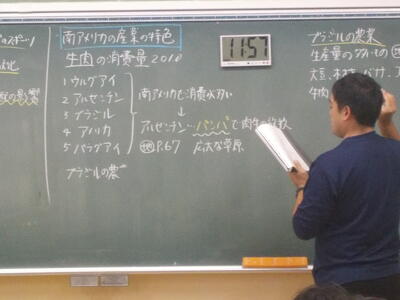 のスポーツ
南アメリカの産業の特色
牛肉の消費量 2010
1 ウルグアイ
2 アルゼンチン
3 ブラジル
4 アメリカ
5 パラグアイ
南アメリカで消費が多い
↓
アルゼンチン…パンパで肉牛の放牧
地 P.67 広大な草原
ブラジルの農
11:57
ブラジルの農業
生産量の多いもの 地
大豆、
牛肉